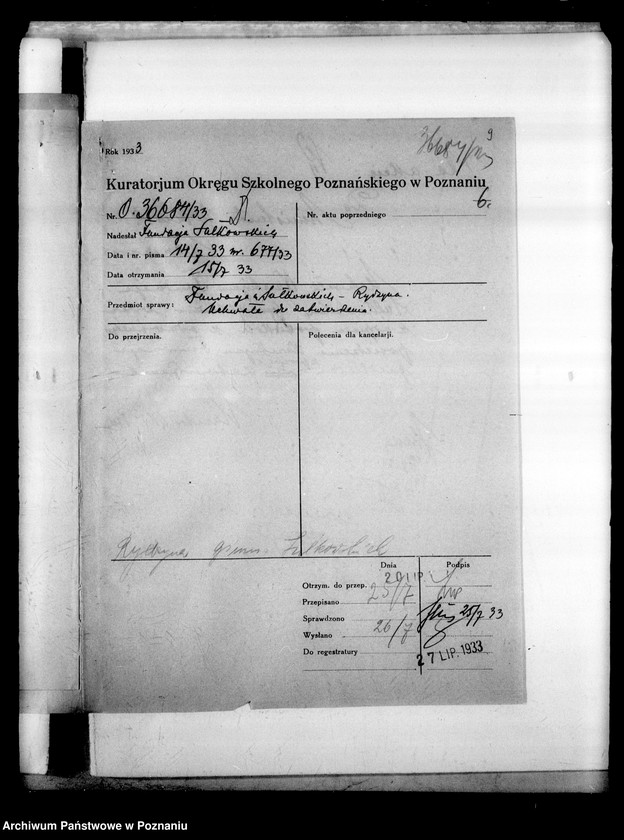 9
36684/33
Rok 1933.
Kuratorjum Okręgu Szkolnego Poznańskiego w Poznaniu
6.
Nr. O. 36684/33
Nr. aktu poprzedniego
Nadesłał Fundacja Sułkowskich
Data i nr. pisma 14/7 33 nr. 677/33
Data otrzymania 15/7 33
Przedmiot sprawy: Fundacja Sułkowskich – Rydzyna.
Uchwała do zatwierdzenia.
Do przejrzenia.
Polecenia dla kancelarji.
Rydzyna gimn. Sułkowskich
Dnia Podpis
20 LIP.
Otrzym. do przep. 25/7
Przepisano
Sprawdzono 25/7 33
Wysłano 26/7
Do regestratury 27 LIP. 1933
Archiwum Państwowe w Poznaniu